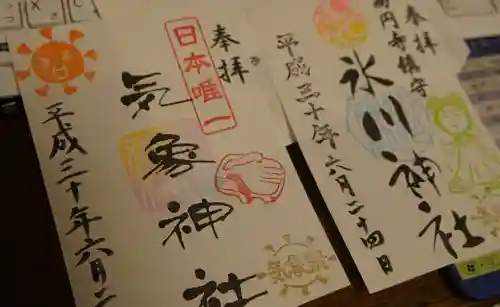 奉拝
日本唯一
気象神社
平成三十年六月二
奉拝
高円寺鎮守
氷川神社
平成三十年六月二十四日